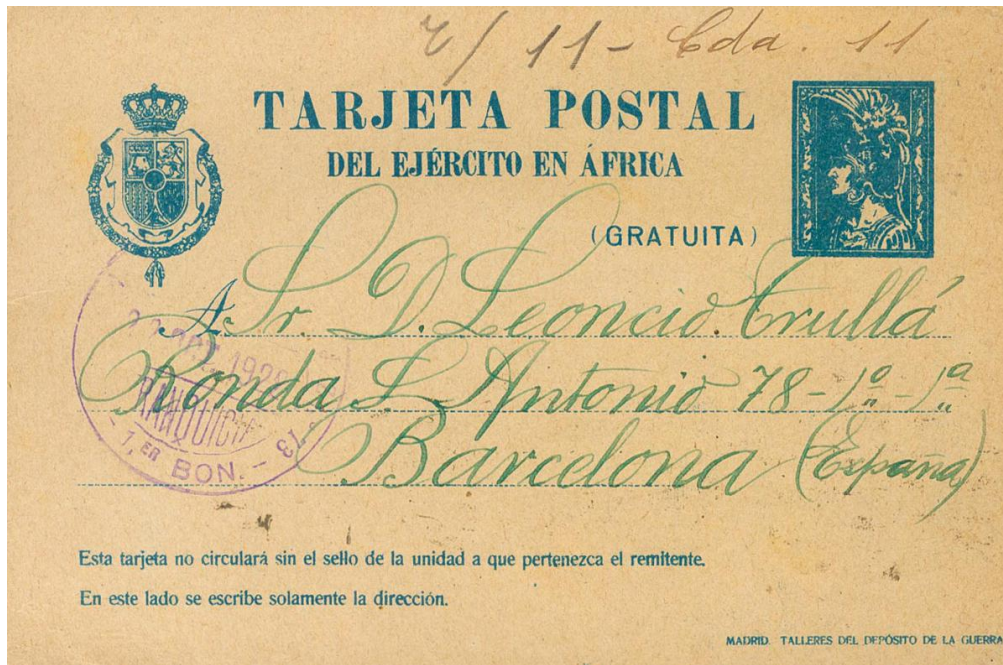 11 - Cda. 11
TARJETA POSTAL
DEL EJÉRCITO EN ÁFRICA
(GRATUITA)
A Sr. D. Leoncio Trullá
Ronda S. Antonio 78-1º-1ª
Barcelona (España)
FRANQUICIA
1,ER BON.
Esta tarjeta no circulará sin el sello de la unidad a que pertenezca el remitente.
En este lado se escribe solamente la dirección.
MADRID. TALLERES DEL DEPÓSITO DE LA GUERRA